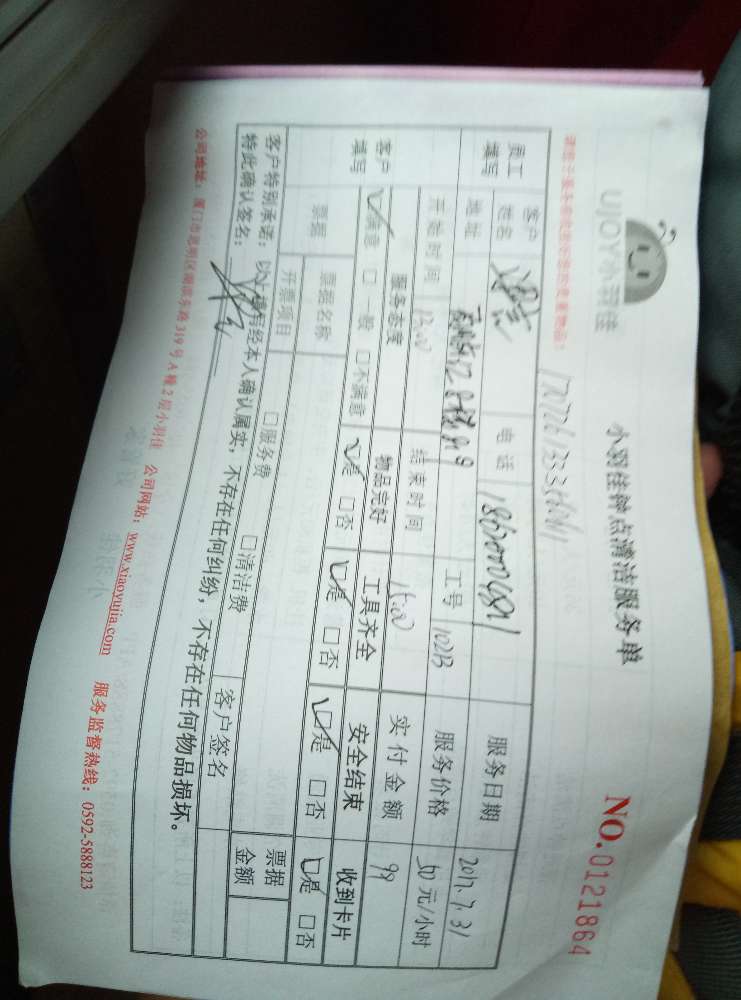 UJOY小羽佳
小羽佳钟点清洁服务单
NO.0121864
员工填写 客户姓名 电话 服务日期 2017.7.31
地址 工号 102B 服务价格 50元/小时
开始时间 13:00 结束时间 15:00 实付金额 99
客户填写 服务态度 物品完好 工具齐全 安全结束 收到卡片
☑满意 □一般 □不满意 ☑是 □否 ☑是 □否 ☑是 □否 ☑是 □否
票据 票据名称 □服务费 □清洁费 票据金额
开票项目 客户签名
客户特别承诺:以上填写经本人确认属实,不存在任何纠纷,不存在任何物品损坏。
特此确认签名:
公司地址:厦门市思明区湖滨东路319号A幢2层小羽佳 公司网站:www.xiaoyujia.com 服务监督热线:0592-5888123